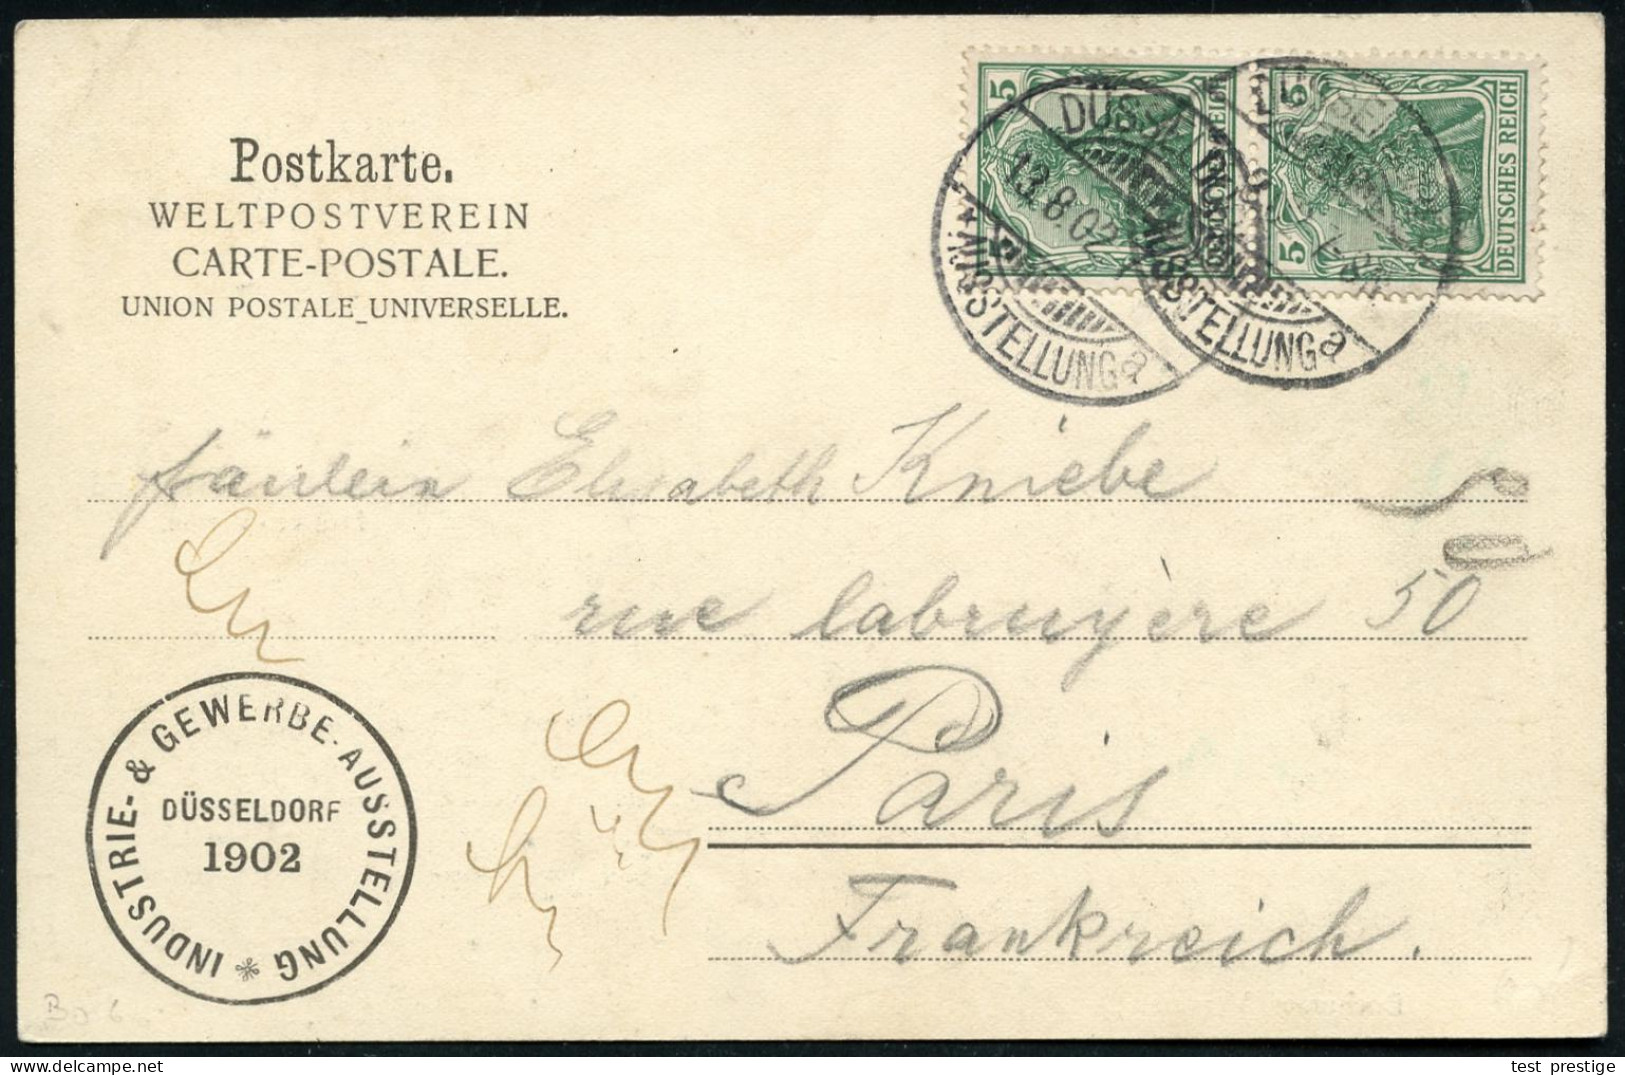 Postkarte.
WELTPOSTVEREIN
CARTE-POSTALE.
UNION POSTALE UNIVERSELLE.
5 5 DEUTSCHES REICH
5 5 DEUTSCHES REICH
DÜSSELDORF
13.8.02
* AUSSTELLUNG a
DÜSSELDORF
AUSSTELLUNG a
Fräulein Elisabeth Kniebe
rue labruyère 50
Paris
Frankreich.
INDUSTRIE- & GEWERBE-AUSSTELLUNG *
DÜSSELDORF
1902
test prestige